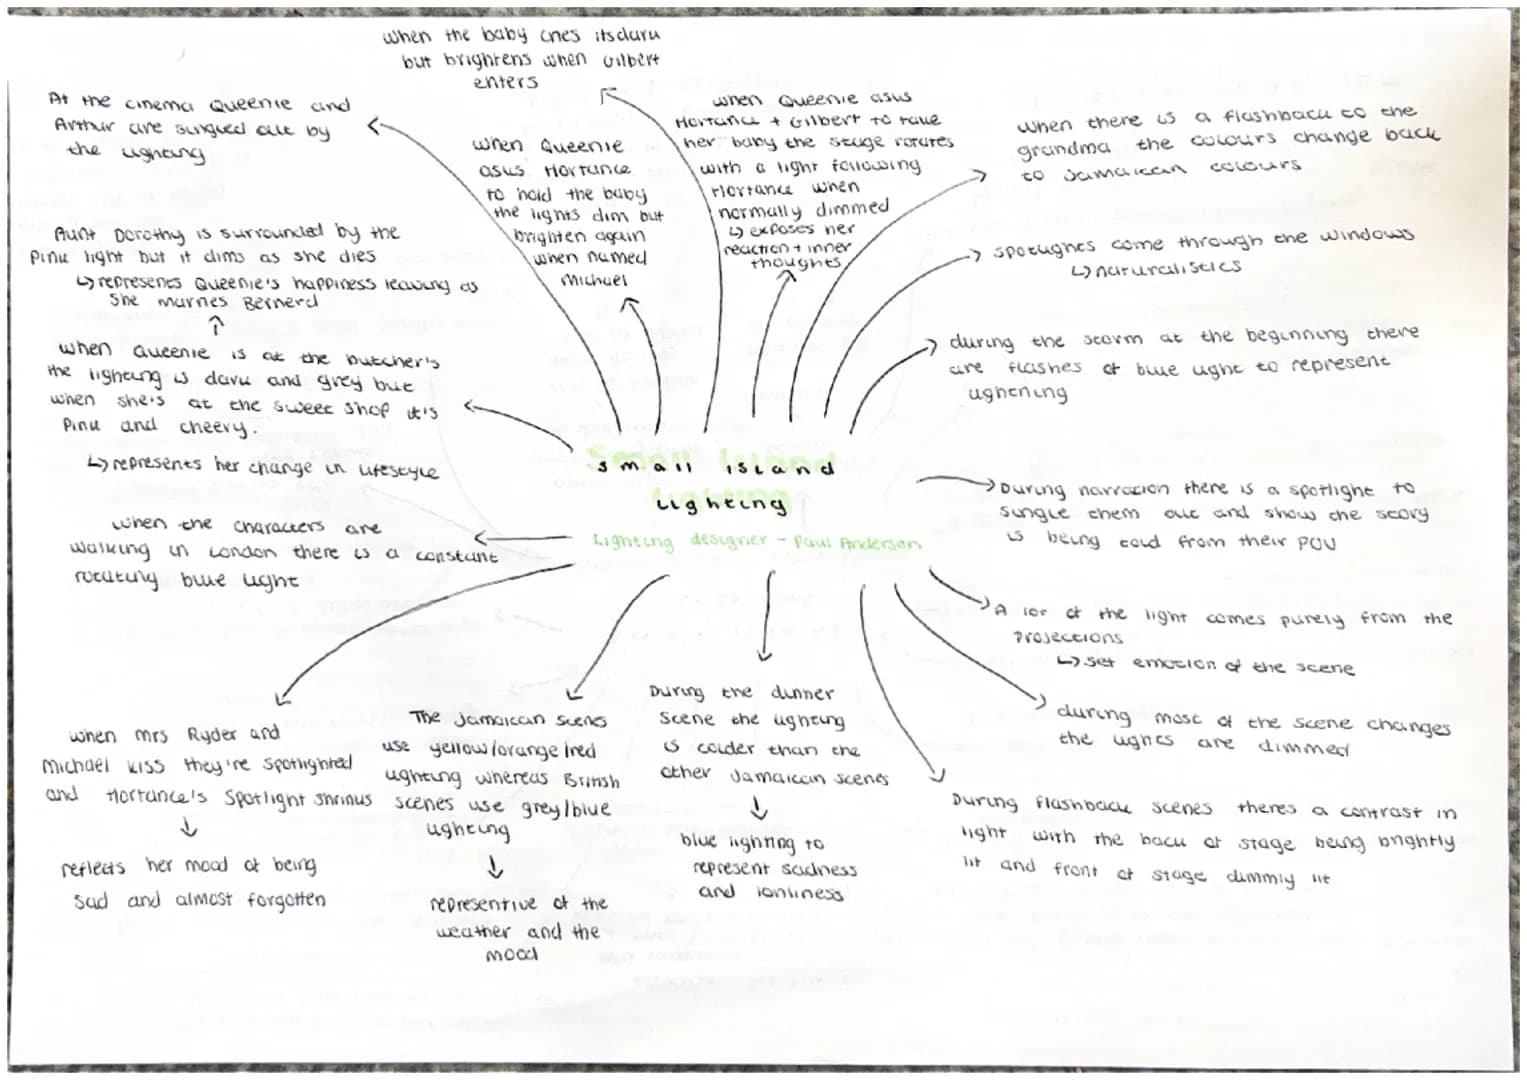 when the baby cries its dark
but brightens when Gilbert
enters
At the cinema Queenie and
Arthur are singled out by
the lighting
when Queenie
asks Hortance
to hold the baby
the lights dim but
brighten again
when named
Michael
when Queenie asks
Hortance + Gilbert to take
her baby the stage rotates
with a light following
Hortance when
normally dimmed
↳ exposes her
reaction + inner
thoughts
when there is a flashback to the
grandma the colours change back
to Jamaican colours
Aunt Dorothy is surrounded by the
pink light but it dims as she dies
↳ represents Queenie's happiness leaving as
she marries Bernerd
spotlights come through the windows
↳ naturalistics
when Queenie is at the butcher's
the lighting is dark and grey but
when she's at the sweet shop it's
pink and cheery.
↳ represents her change in lifestyle
during the storm at the beginning there
are flashes of blue light to represent
lightening
small island
Lighting
Lighting designer - Paul Anderson
During narration there is a spotlight to
single them out and show the story
is being told from their POV
when the characters are
walking in London there is a constant
rotating blue light
A lot of the light comes purely from the
projections
↳ set emotion of the scene
during most of the scene changes
the lights are dimmed
when Mrs Ryder and
Michael kiss they're spotlighted
and Hortance's spotlight shrinks
reflects her mood of being
sad and almost forgotten
The Jamaican scenes
use yellow/orange/red
lighting whereas British
scenes use grey/blue
lighting
representive of the
weather and the
mood
During the dinner
scene the lighting
is colder than the
other Jamaican scenes
blue lighting to
represent sadness
and lonliness
During flashback scenes theres a contrast in
light with the back of stage being brightly
lit and front of stage dimmly lit